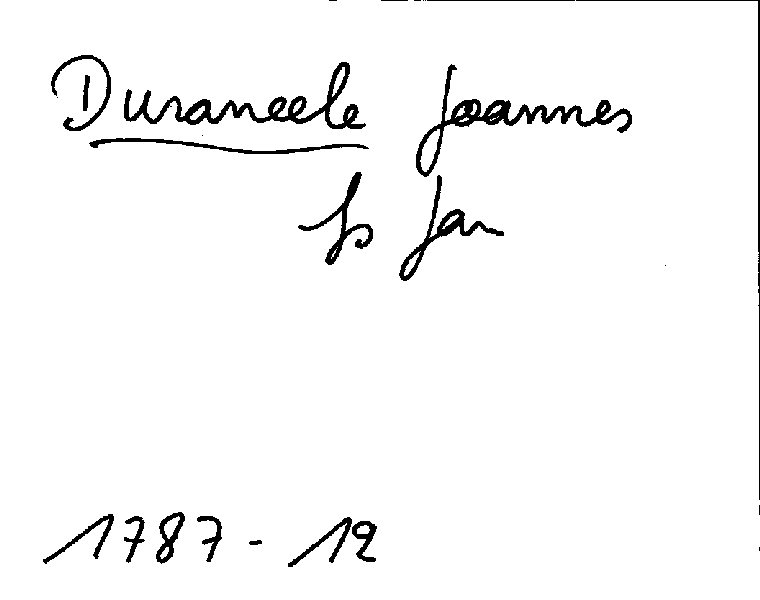 Duraneele Joannes
fs Jan
1787 - 12